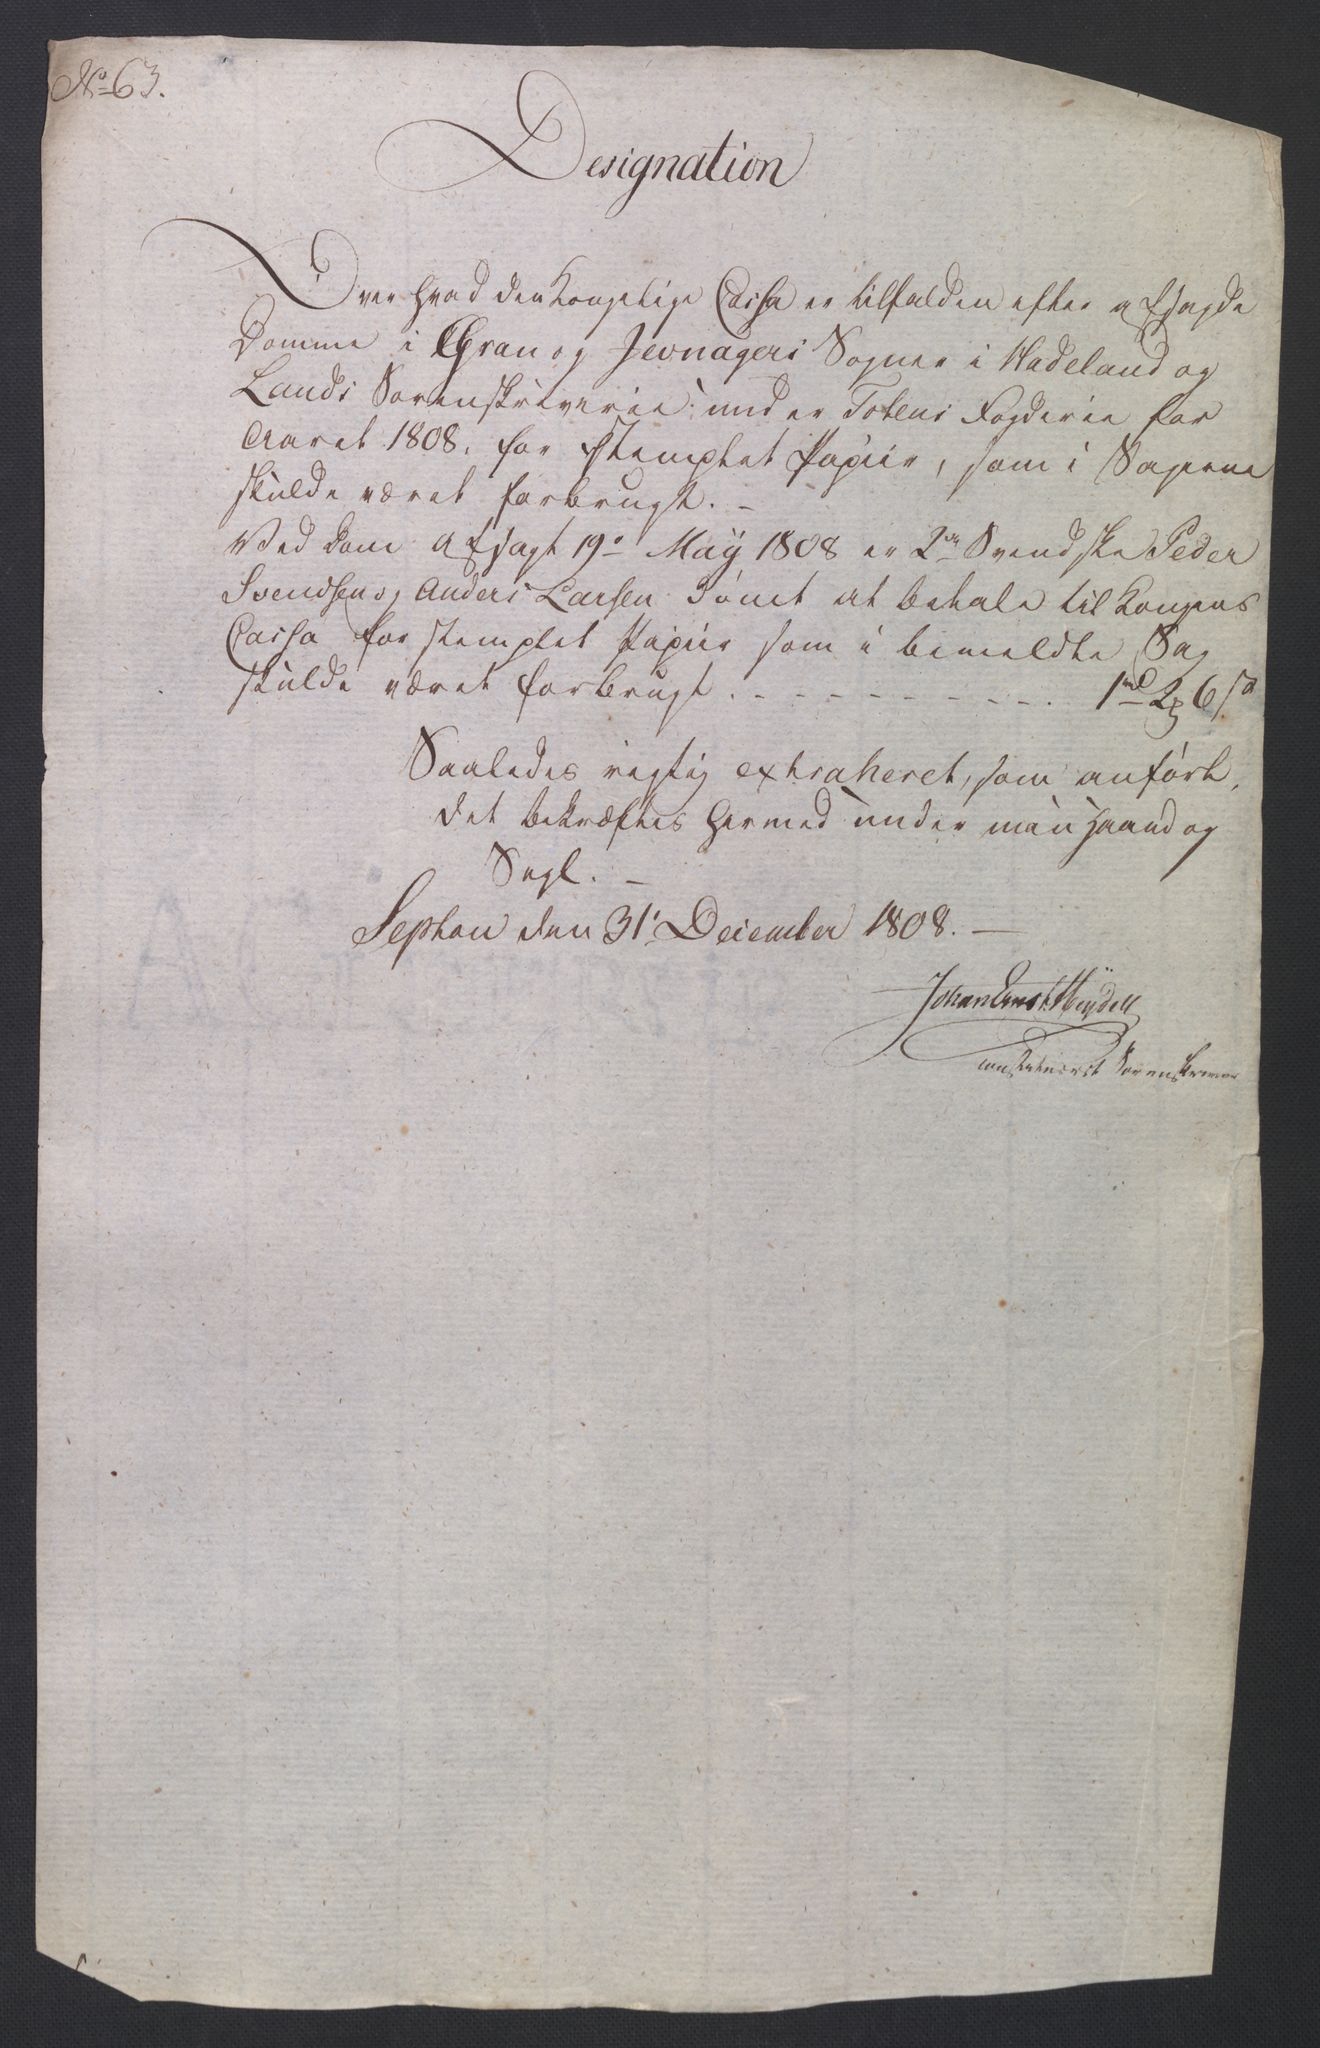 No 63.
Designation
Over hvad den Kongelige Cassa er tilfalden efter afsagde
Domme i Gran og Jevnagers Sogner i Hadeland og
Lands Sorenskriverie under Totens Fogderie for
Aaret 1808. for stemplet Papiir, som i Sagerne
skulde været forbrugt. -
Ved Dom afsagt 19o May 1808 er 2de Svendske Peder
Svendsen og Anders Larsen dömt at betale til Kongens
Cassa for stemplet Papiir som i bemeldte Sag
skulde været forbrugt . - - - - - - - - - - . 1 rd 2 6 s
Saaledes rigtig extraheret, som anfört,
det bekræftes hermed under min Haand og
Segl. -
Septon den 31' December 1808. -
Johan Ernst Heydell
constitueret Sorenskriver